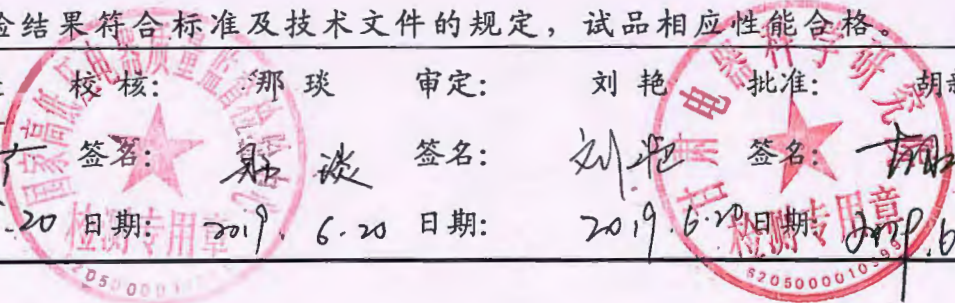 检结果符合标准及技术文件的规定，试品相应性能合格。
校核： 那琰 审定： 刘艳 批准： 胡
签名： 那琰 签名： 刘艳 签名：
.20 日期： 2019. 6.20 日期： 2019.6.20 日期： 2019.6
国家高低压电器质量监督检验中心
检测专用章
甘肃电器科学研究院
检测专用章